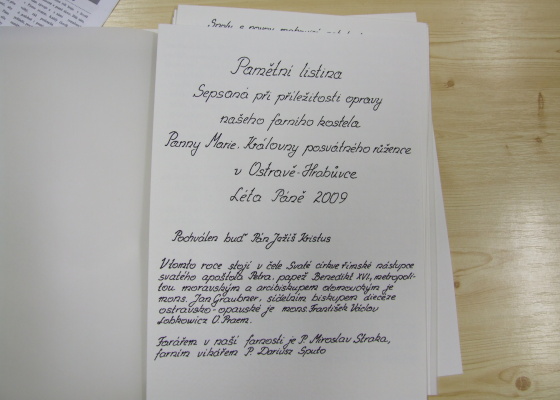 Pamětní listina
Sepsaná při příležitosti opravy
našeho farního kostela
Panny Marie. Královny posvátného růžence
v Ostravě-Hrabůvce
Léta Páně 2009
Pochválen buď Pán Ježíš Kristus
V tomto roce stojí v čele Svaté církve římské nástupce
svatého apoštola Petra, papež Benedikt XVI, metropoli-
tou moravským a arcibiskupem olomouckým je
mons. Jan Graubner, sídelním biskupem diecéze
ostravsko-opavské je mons. František Václav
Lobkowicz O. Praem.
Farářem v naší farnosti je P. Miroslav Straka,
farním vikářem P. Dariusz Sputo